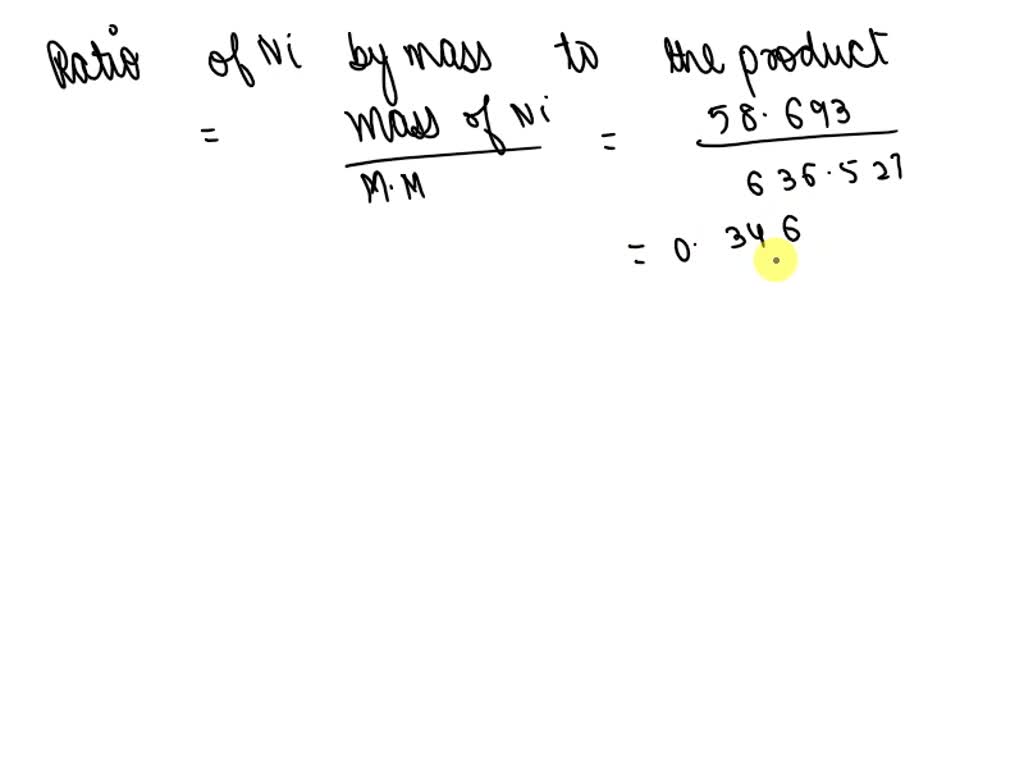 Ratio of Ni by mass to the product
= mass of Ni / M.M = 58.693 / 636.527
= 0.346